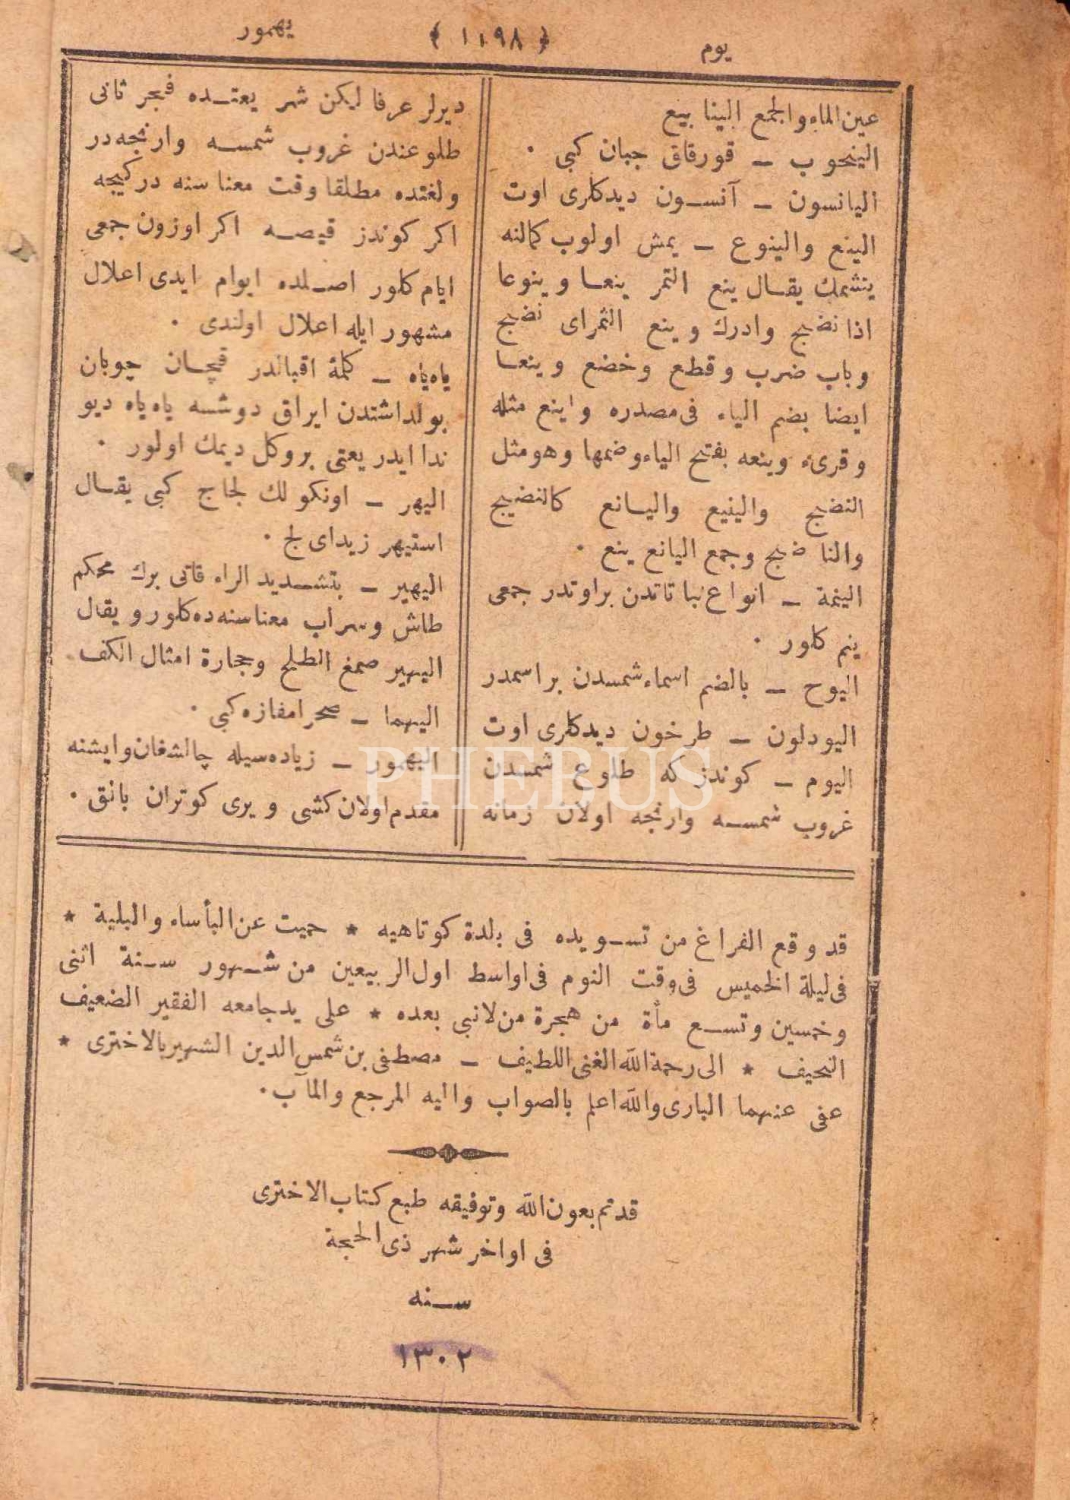 يوم
﴿ ١١٩٨ ﴾
يهمور
عين الماء والجمع الينابيع
الينحوب ــ قورقاق جبان كبى ٠
اليانسون ــ آنسون ديدكلرى اوت
الينع والينوع ــ يمش اولوب كمالنه
يتشمك يقال ينع التمر ينعا وينوعا
اذا نضج وادرك وينع الثمر اى نضج
وباب ضرب وقطع وخضع وينعا
ايضا بضم الياء فى مصدره واينع مثله
وقرىء وينعه بفتح الياء وضمها وهو مثل
النضج والينيع واليانع كالنضيج
والناضج وجمع اليانع ينع ٠
الينمة ــ انواع نباتاتدن براوتدر جمعى
ينم كلور ٠
اليوح ــ بالضم اسماء شمسدن براسمدر
اليودلون ــ طرخون ديدكلرى اوت
اليوم ــ كوندز كه طلوع شمسدن
غروب شمسه وارنجه اولان زمانه
ديرلر عرفا ليكن شهر يعتده فجر ثانى
طلوعندن غروب شمسه وارنجه در
ولغتده مطلقا وقت معناسنه در كيجه
اكر كوندز قيصه اكر اوزون جمعى
ايام كلور اصلده ايوام ايدى اعلال
مشهور ايله اعلال اولندى ٠
ياه ياه ــ كلمۀ اقبالدر قچان چوبان
يولداشتدن ايراق دوشه ياه ياه ديو
ندا ايدر يعنى بروكل ديمك اولور ٠
اليهر ــ اونكولك لجاج كبى يقال
استيهر زيد اى لج ٠
اليهير ــ بتشديد الراء قاتى برك محكم
طاش وسراب معناسنه ده كلور ويقال
اليهير صمغ الطلح وحجارة امثال الكف
اليهما ــ صحرا مفازه كبى ٠
اليهمور ــ زياده سيله چالشغان وايشنه
مقدم اولان كشى ويرى كوتران بانق ٠
PHEBUS
قد وقع الفراغ من تسويده فى بلدة كوتاهيه * حميت عن البأساء والبلية *
فى ليلة الخميس فى وقت النوم فى اواسط اول الربيعين من شهور سنة اثنى
وخمسين وتسع مأة من هجرة من لا نبى بعده * على يد جامعه الفقير الضعيف
النحيف * الى رحمة الله الغنى اللطيف ــ مصطفى بن شمس الدين الشهير بالاخترى *
عفى عنهما البارى والله اعلم بالصواب واليه المرجع والمآب ٠
قد تم بعون الله وتوفيقه طبع كتاب الاخترى
فى اواخر شهر ذى الحجة
سنه
١٣٠٢